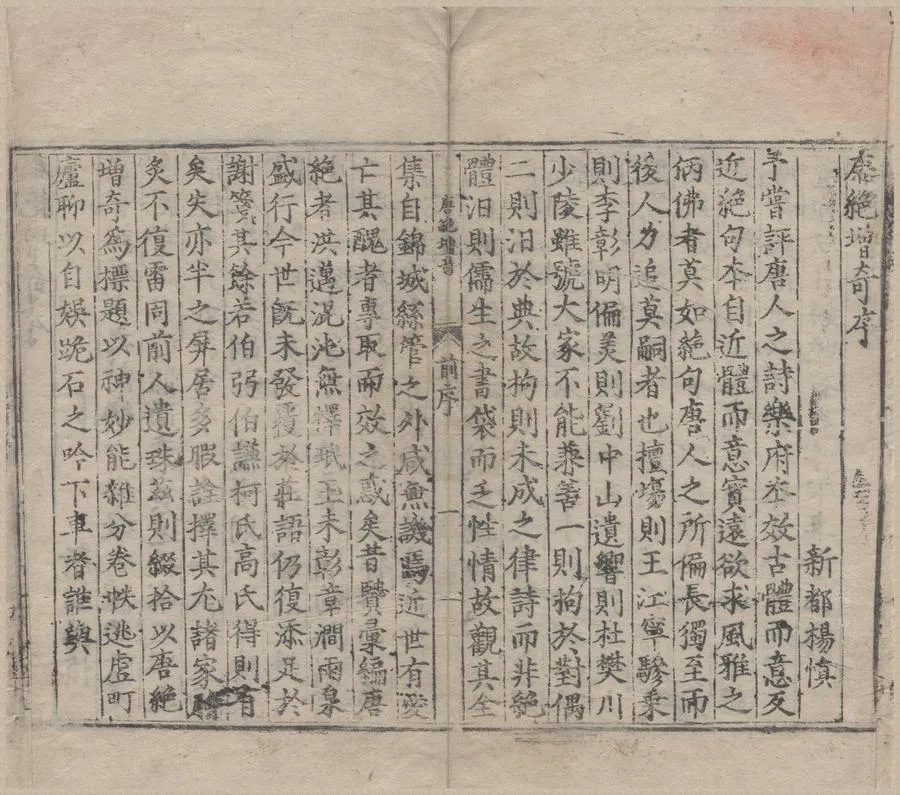 唐絶增奇序
新都楊慎
予嘗評唐人之詩樂府本效古體而意反
近絶句本自近體而意實遠欲求風雅之
仿佛者莫如絶句唐人之所偏長獨至而
後人力追莫嗣者也擅塲則王江寧驂乗
則李彰明偏美則劉中山遺響則杜樊川
少陵雖號大家不能兼善一則拘於對偶
二則汩於典故拘則未成之律詩而非絶
體汩則儒生之書袋而乏性情故觀其全
唐絶增奇
前序
一
集自錦城絲管之外咸無譏焉近世有愛
亡其醜者專取而效之惑矣昔賢彙編唐
絶者洪邁混沌無擇珉玉未彰章澗兩泉
盛行今世旣未發覆於莊語仍復添足於
謝箋其餘若伯弜伯謙柯氏高氏得則有
矣失亦半之屏居多暇詮擇其尤諸家膾
炙不復雷同前人遺珠茲則綴拾以唐絶
增奇爲標題以神妙能雜分卷帙逃虛町
廬聊以自娱跪石之吟下車者誰與